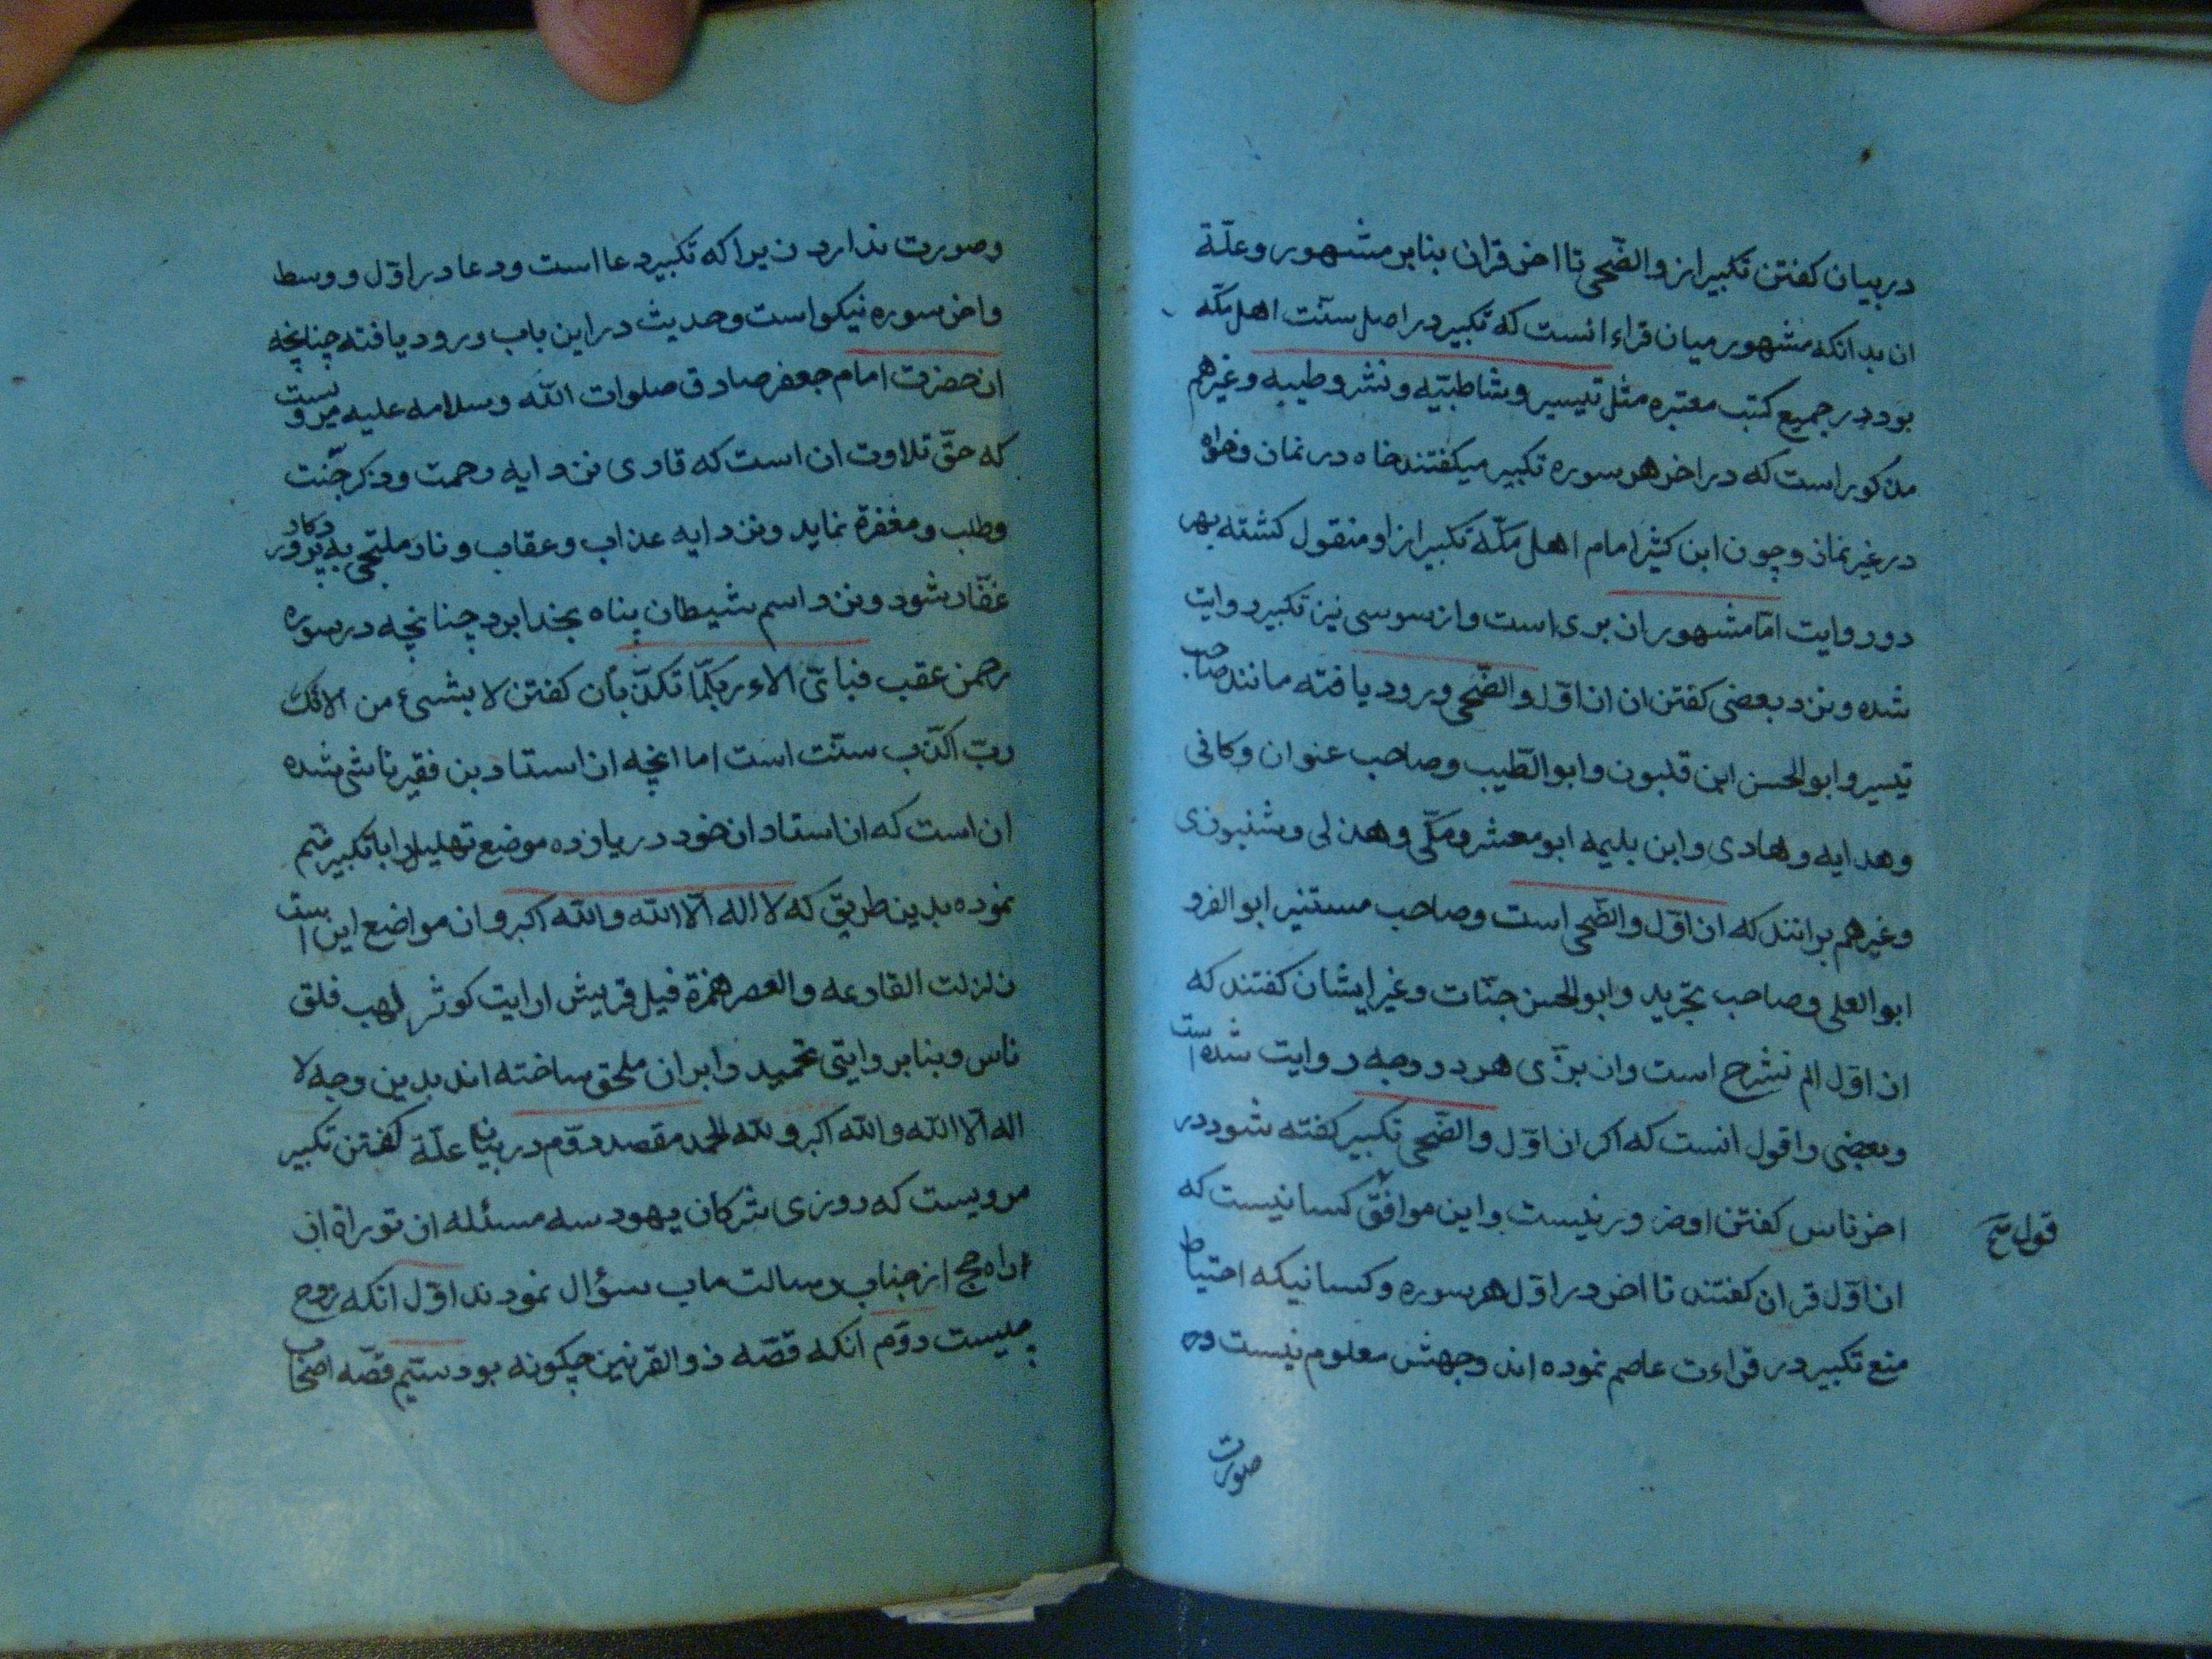 در بیان کفتن تکبیر از والضّحی تا اخر قران بنابر مشهور و علّة
ان بدانکه مشهور میان قراء انست که تکبیر در اصل سنّت اهل مکّه
بود در جمیع کتب معتبره مثل تیسیر و شاطبیّه و نشر و طیبه و غیرهم
مذکور است که در اخر هر سوره تکبیر میکفتند خاه در نماز و خواه
در غیر نماز و چون ابن کثیر امام اهل مکّه تکبیر از او منقول کشته بهر
دو روایت امّا مشهور ان بزی است و از سوسی نیز تکبیر روایت
شده و نزد بعضی کفتن ان از اوّل والضّحی ورود یافته مانند صاحب
تیسیر و ابوالحسن ابن قلبون و ابوالطّیب و صاحب عنوان و کافی
و هدایه و هادی و ابن بلیمه ابو معشر و مکّی و هذلی و شنبوزی
و غیرهم برانند که از اوّل والضّحی است و صاحب مستنیر ابوالفرو
ابوالعلی و صاحب تجرید و ابوالحسن جنّات و غیر ایشان کفتند که
از اوّل الم نشرح است و از بزّی هر دو وجه روایت شده است
و بعضی را قول انست که اکر از اوّل والضّحی تکبیر کفته شود در
اخر ناس کفتن او ضرور نیست و این موافق کسانیست که
از اوّل قران کفتند تا اخر در اوّل هر سوره و کسانیکه احتیاط
منع تکبیر در قراءت عاصم نموده اند وجهش معلوم نیست و
قول
صورت
وصورت ندارد زیرا که تکبیر دعا است و دعا در اوّل و وسط
و اخر سوره نیکو است و حدیث در این باب ورود یافته چنانچه
از حضرت امام جعفر صادق صلوات الله و سلامه علیه مرویست
که حقّ تلاوت ان است که قاری نزد ایه رحمت و ذکر جنّت
و طلب و مغفرة نماید و نزد ایه عذاب و عقاب و نار ملتجی به پرورکار
غفّار شود و نزد اسم شیطان پناه بخدا برد چنانچه در سوره
رحمن عقب فبایّ الاء ربکّما تکذّبان کفتن لا بشیء من الائک
ربّ اکذّب سنّت است اما انچه از استاد بن فقیر ناشی شده
ان است که از استاد ان خود در یازده موضع تهلیل را با تکبیر ضم
نموده بدین طریق که لا اله الّا الله و الله اکبر و ان مواضع این است
زلزلت القارعه والعصر همزة فیل قریش ارایت کوثر لهب فلق
ناس و بنابر روایتی تحمید را بر ان ملحق ساخته اند بدین وجه لا
اله الّا الله و الله اکبر و لله الحمد مقصد دوّم در بیان علّة کفتن تکبیر
مرویست که روزی شرکان یهود سه مسئله از توراة از
راه حج از جناب رسالت ماب سؤال نمودند اوّل انکه روح
چیست دوّم انکه قصّه ذوالقرنین چکونه بود سیّم قصّه اصحاب